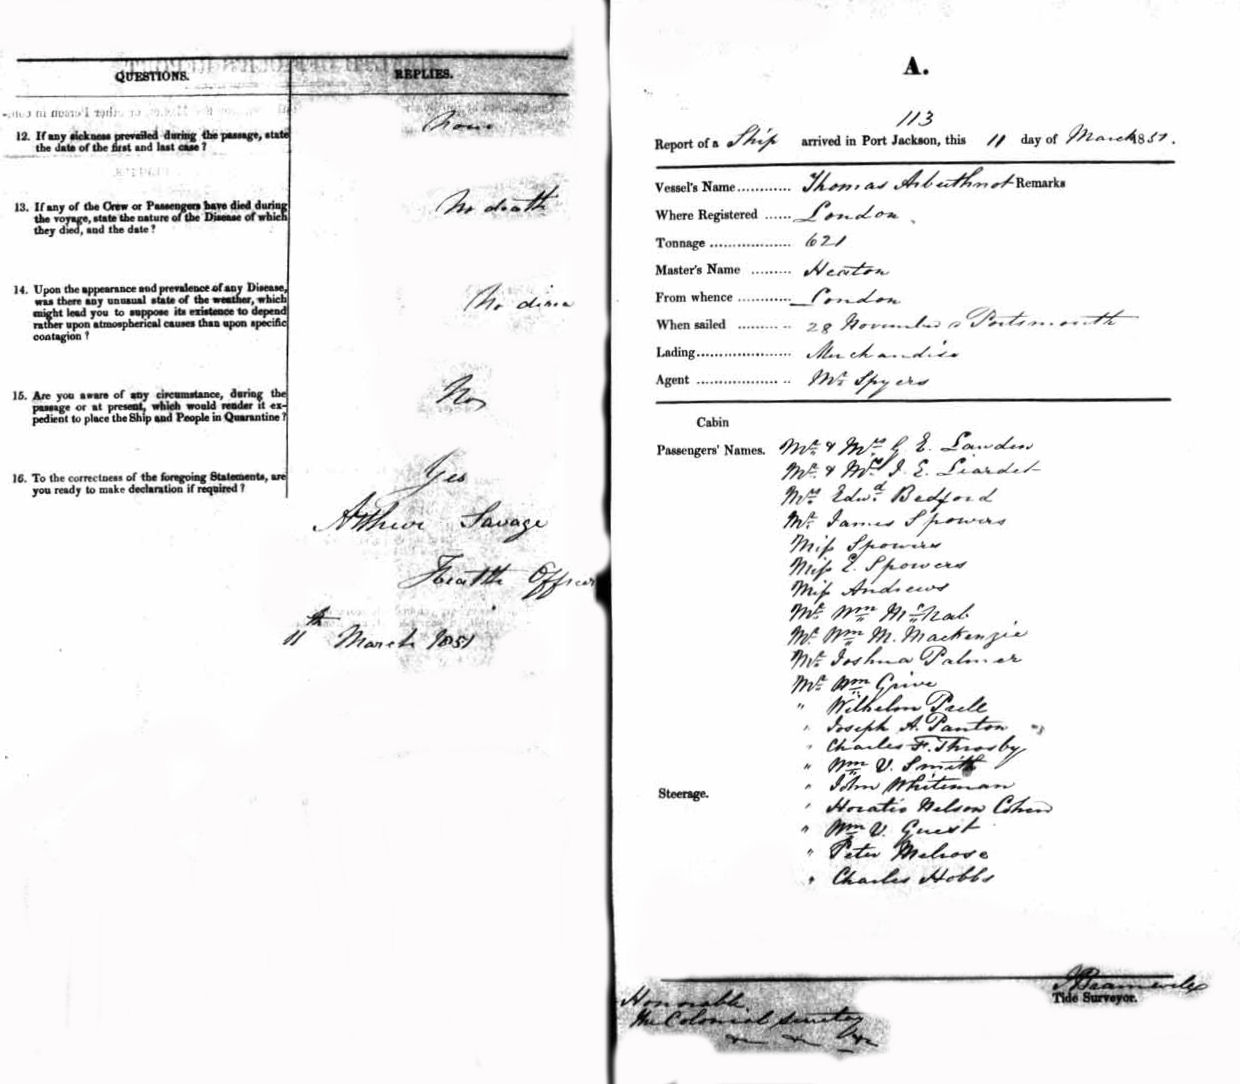 QUESTIONS.
REPLIES.
12. If any sickness prevailed during the passage, state
the date of the first and last case?
None
13. If any of the Crew or Passengers have died during
the voyage, state the nature of the Disease of which
they died, and the date?
No death
14. Upon the appearance and prevalence of any Disease,
was there any unusual state of the weather, which
might lead you to suppose its existence to depend
rather upon atmospherical causes than upon specific
contagion?
No disea
15. Are you aware of any circumstance, during the
passage or at present, which would render it ex-
pedient to place the Ship and People in Quarantine?
No
16. To the correctness of the foregoing Statements, are
you ready to make declaration if required?
Yes
Arthur Savage
Health Officer
11th March 1851
A.
113
Report of a Ship arrived in Port Jackson, this 11 day of March 1851.
Vessel's Name............ Thomas Arbuthnot Remarks
Where Registered ...... London
Tonnage .................. 621
Master's Name ......... Heaton
From whence ............ London
When sailed ............ 28 November Portsmouth
Lading..................... Merchandise
Agent .................... Mr. Spyers
Cabin
Passengers' Names. Mr. & Mrs. G. E. Lawden
Mr. & Mrs. J. E. Liardet
Mrs. Edwd. Bedford
Mr. James Spowers
Miss Spowers
Miss E. Spowers
Miss Andrews
Mr. Wm McNab
Mr. Wm M. Mackenzie
Mr. Joshua Palmer
Mr. Wm Grive
" Wilhelm Prell
" Joseph A. Panton
" Charles F. Throsby
" Wm V. Smith
" John Whiteman
Steerage.
" Horatio Nelson Cohen
" Wm V. Guest
" Peter Melrose
" Charles Hobbs
Tide Surveyor.
Honorable
The Colonial Secretary